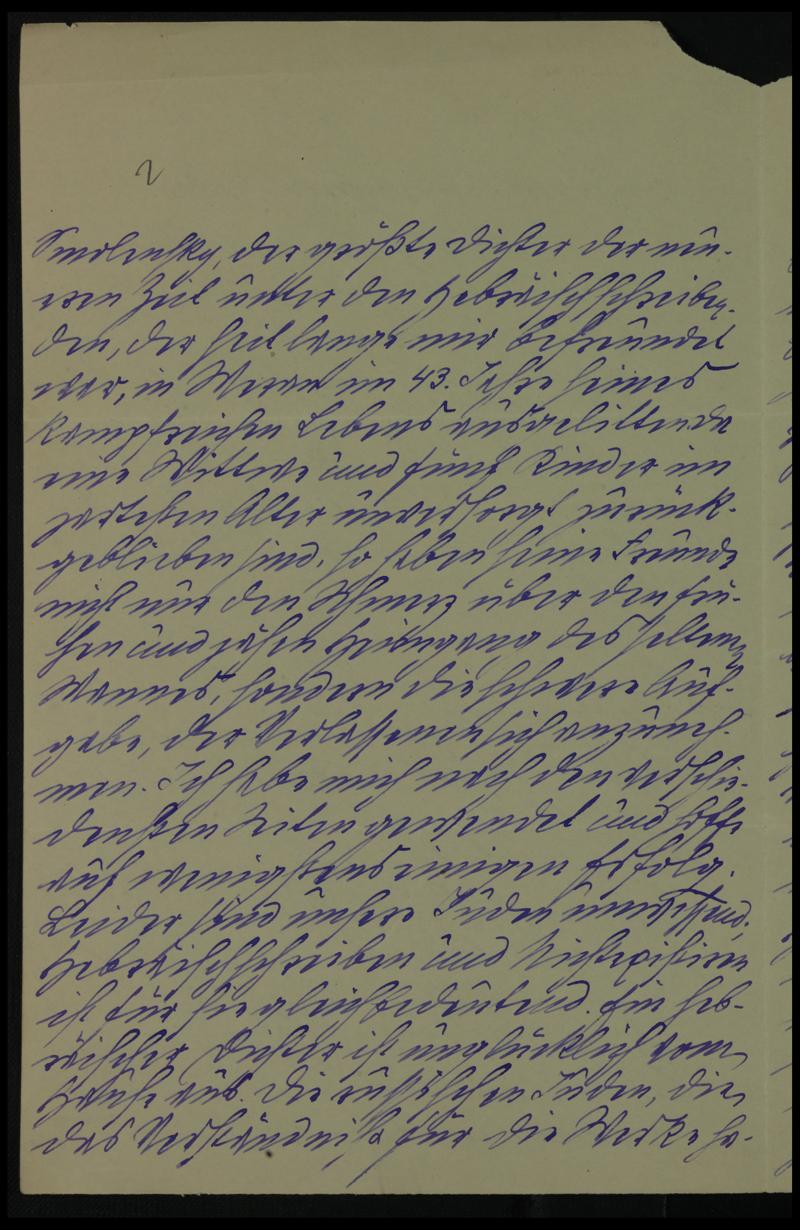 2
Smolensky, der größte Dichter der neu-
eren Zeit unter den Hebräischschreiben-
den, der seit lange mir befreundet
war, in Meran im 43. Jahre seines
kampfreichen Lebens ausgelitten
eine Wittwe und fünf Kinder im
zartesten Alter unversorgt zurück-
geblieben sind, so haben seine Freunde
nicht nur den Schmerz über den frü-
hen und jähen Heimgang des seltenen
Mannes, sondern die schwere Auf-
gabe, der Verlassenen sich anzuneh-
men. Ich habe mich nach den verschie-
densten Seiten gewendet und hoffe
auf wenigstens einigen Erfolg.
Leider sind unsere Juden unwissend,
Hebräischschreiben und Nichtexistiren
ist für sie gleichbedeutend. Ein heb-
räischer Dichter ist unglücklich vom
Hause aus. Die russischen Juden, die
das Verständniß für die Werke ha-